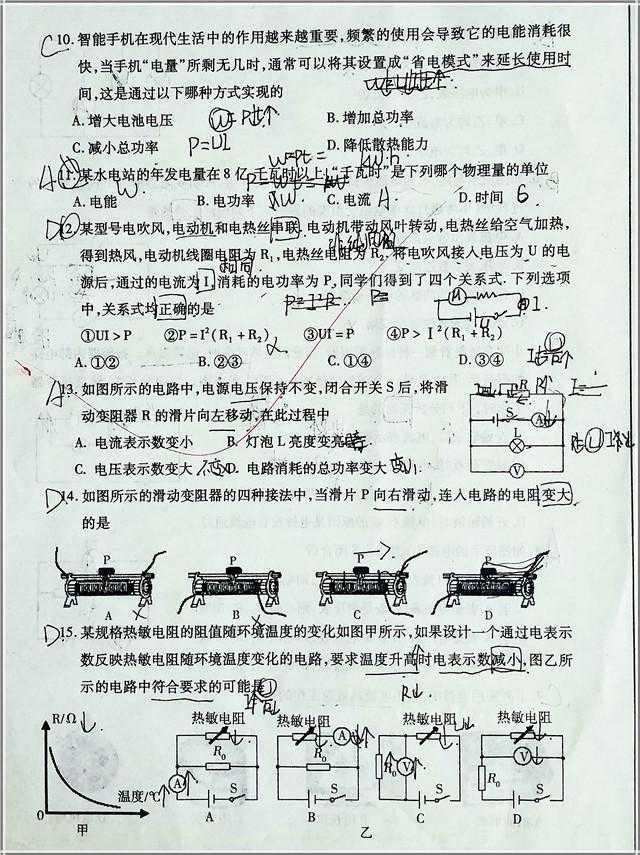 C 10. 智能手机在现代生活中的作用越来越重要,频繁的使用会导致它的电能消耗很
快,当手机“电量”所剩无几时,通常可以将其设置成“省电模式”来延长使用时
间,这是通过以下哪种方式实现的
A. 增大电池电压 B. 增加总功率
C. 减小总功率 P=UI D. 降低散热能力
W=Pt=
A 11. 某水电站的年发电量在 8 亿“千瓦时”以上,“千瓦时”是下列哪个物理量的单位
A. 电能 B. 电功率 C. 电流 A D. 时间
D 12. 某型号电吹风,电动机和电热丝串联,电动机带动风叶转动,电热丝给空气加热,
得到热风,电动机线圈电阻为 R₁,电热丝电阻为 R₂.将电吹风接入电压为 U 的电
相同
源后,通过的电流为 I,消耗的电功率为 P,同学们得到了四个关系式.下列选项
中,关系式均正确的是
①UI＞P ②P=I²(R₁+R₂) ③UI=P ④P＞I²(R₁+R₂)
A. ①② B. ②③ C. ①④ D. ③④
A 13. 如图所示的电路中,电源电压保持不变,闭合开关 S 后,将滑
动变阻器 R 的滑片向左移动,在此过程中
A. 电流表示数变小 B. 灯泡 L 亮度变亮 暗
C. 电压表示数变大 不变 D. 电路消耗的总功率变大 变小
R
S A
L
V
D 14. 如图所示的滑动变阻器的四种接法中,当滑片 P 向右滑动,连入电路的电阻变大
的是
P P P P
A B C D
D 15. 某规格热敏电阻的阻值随环境温度的变化如图甲所示,如果设计一个通过电表示
数反映热敏电阻随环境温度变化的电路,要求温度升高时电表示数减小,图乙所
示的电路中符合要求的可能是
R↓
R/Ω 热敏电阻 热敏电阻 热敏电阻 热敏电阻
A V V
R₀ R₀ R₀ R₀
A
0 温度/℃ S S S S
甲 A B C D
乙